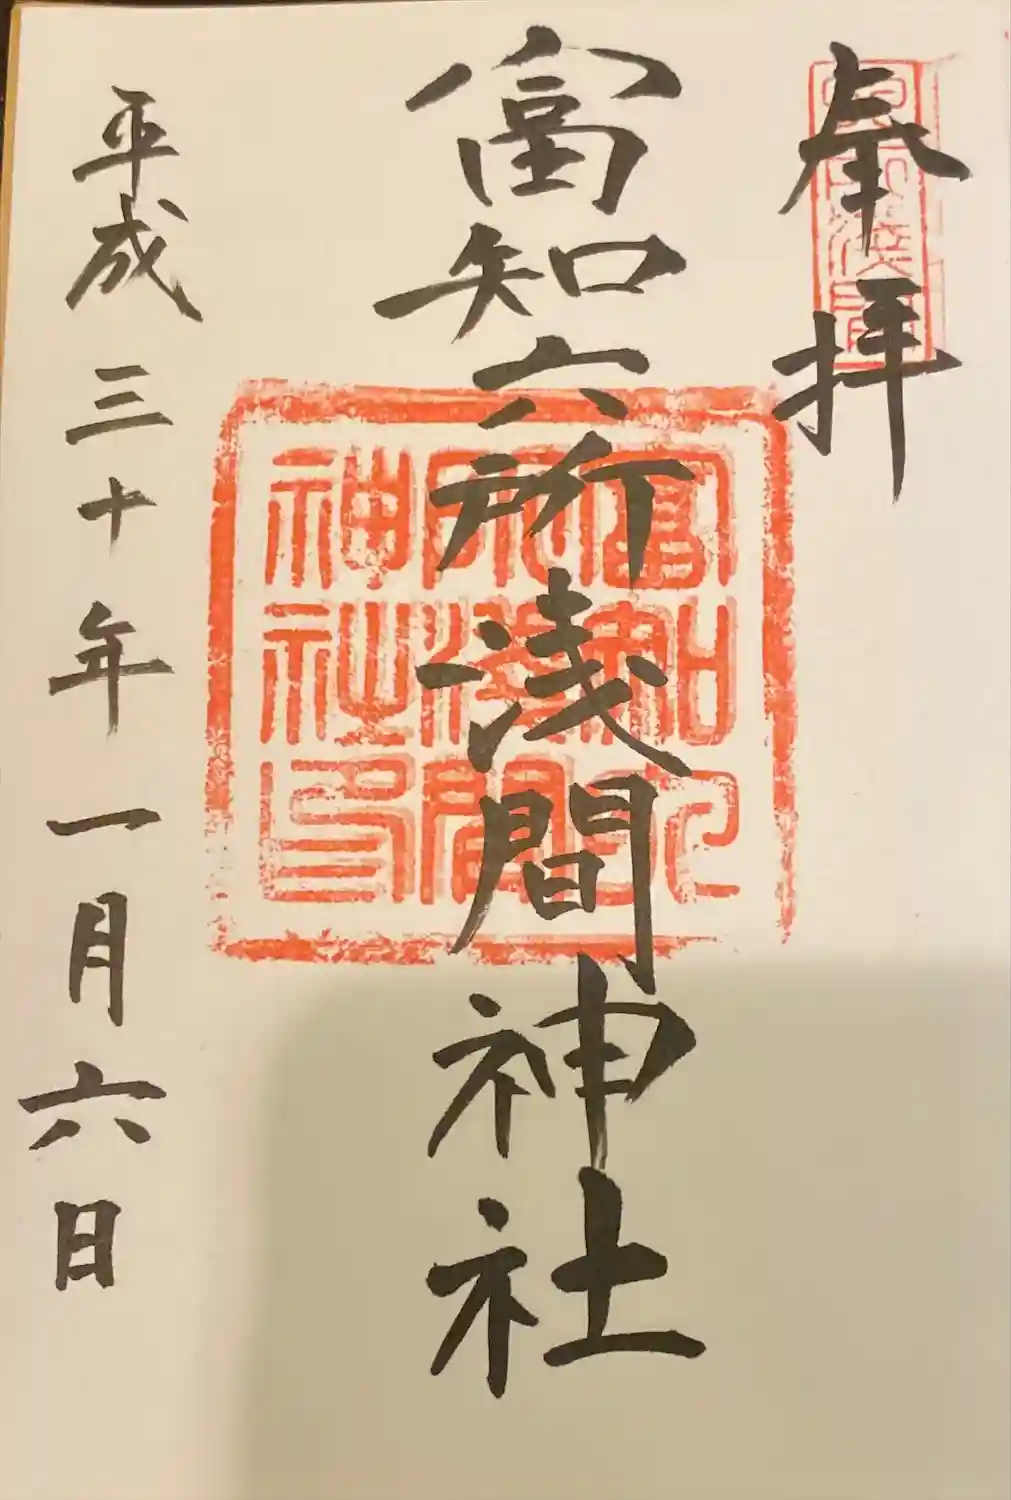 奉拝
富知六所浅間神社
富知六
所浅間
神社印
平成三十年一月六日